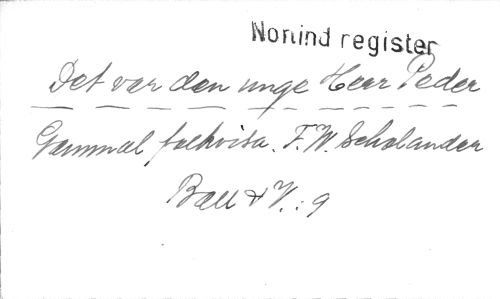 Nonind register
Det var den unge Herr Peder
Gammal folkvisa. F.W. Scholander
Ball & V.: 9